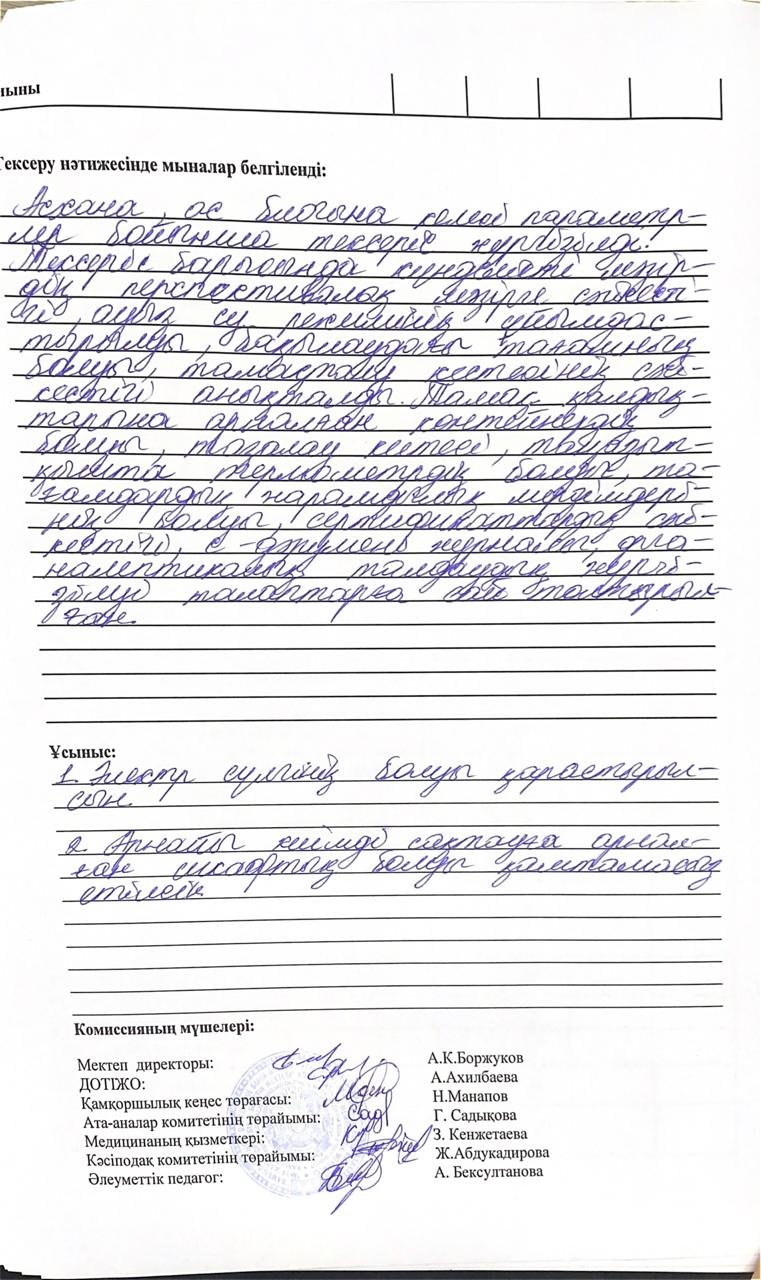 ыны
Тексеру нәтижесінде мыналар белгіленді:
Асхана, ас блогына келесі параметр-
лер бойынша тексеріс жүргізілді.
Тексеріс барысында күнделікті мәзір-
дің перспективалық мәзірге сәйкесті-
гі, ауыз су режимінің ұйымдас-
тырылуы, бақылаудағы тағамның
болуы, тамақтану кестесінің сәй-
кестігі анықталды. Тамақ қалдық-
тарына арналған контейнердің
болуы, тазалау кестесі, тоңазыт-
қышта термометрдің болуы, та-
ғамдардың жарамдылық мерзімдері-
нің болуы, сертификаттардың сәй-
кестігі, с-витамень журналы, орга-
налептикалық талдаудың жүргі-
зілуі талаптарға сай толтырыл-
ған.
Ұсыныс:
1. Электр сүлгінің болуы қарастырыл-
сын.
2. Арнайы киімді сақтауға арнал-
ған шкафтың болуы қамтамасыз
етілсін
Комиссияның мүшелері:
Мектеп директоры: А.К.Боржуков
ДОТІЖО: А.Ахилбаева
Қамқоршылық кеңес төрағасы: Н.Манапов
Ата-аналар комитетінің төрайымы: Г. Садықова
Медицинаның қызметкері: З. Кенжетаева
Кәсіподақ комитетінің төрайымы: Ж.Абдукадирова
Әлеуметтік педагог: А. Бексултанова